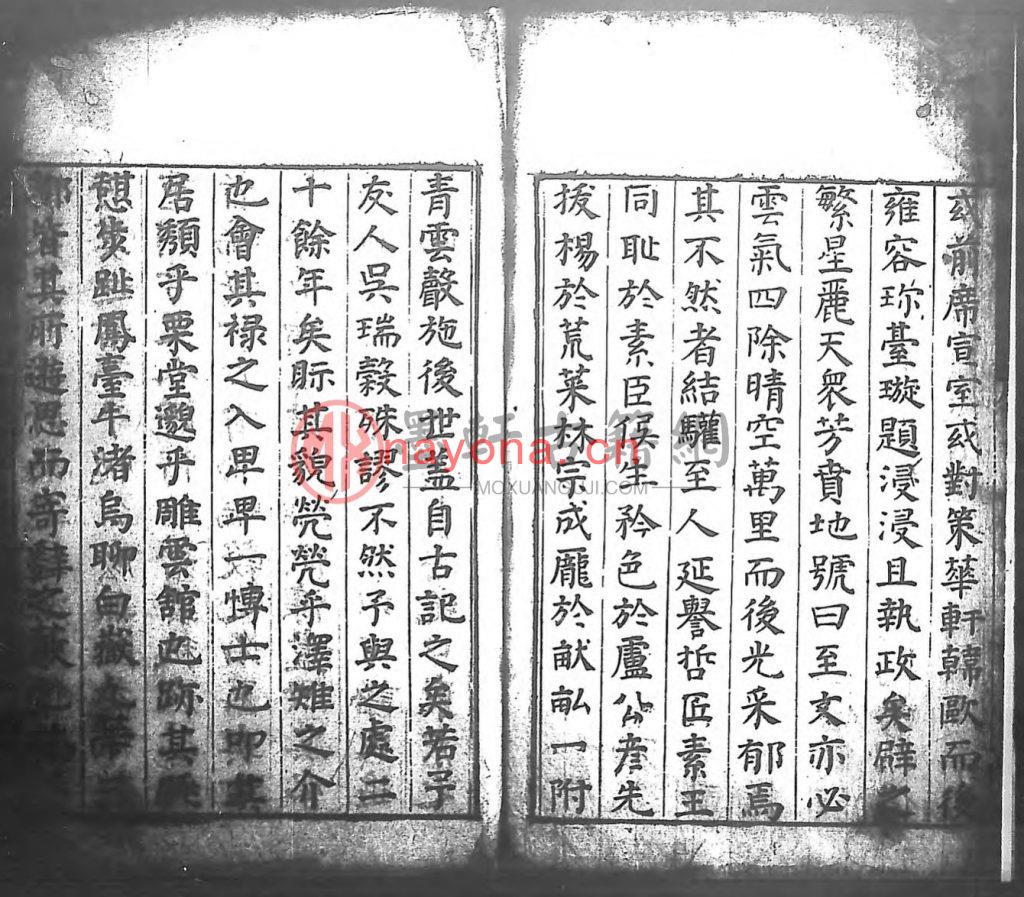 或前席宣室或對策華軒韓歐而後
雍容珎臺璇題浸浸且執政矣辟之
繁星麗天衆芳賁地號曰至文亦必
雲氣四除晴空萬里而後光采郁焉
其不然者結驩至人延譽哲匠素王
同耻於素臣侯生矜色於盧公彦先
拔楊於荒菜林宗成龐於猷畆一附
青雲聲施後世盖自古記之矣若予
友人吳瑞穀殊謬不然予與之處二
十餘年矣眎其貌煢煢乎澤雉之介
也會其禄之入卑卑一博士也即其
居頽乎栗堂邈乎雕雲舘也跡其
憇鳳臺牛渚烏聊白嶽
皆其所遊思而寄
墨軒古籍網
nayona.cn
MOXUANGUJI.COM